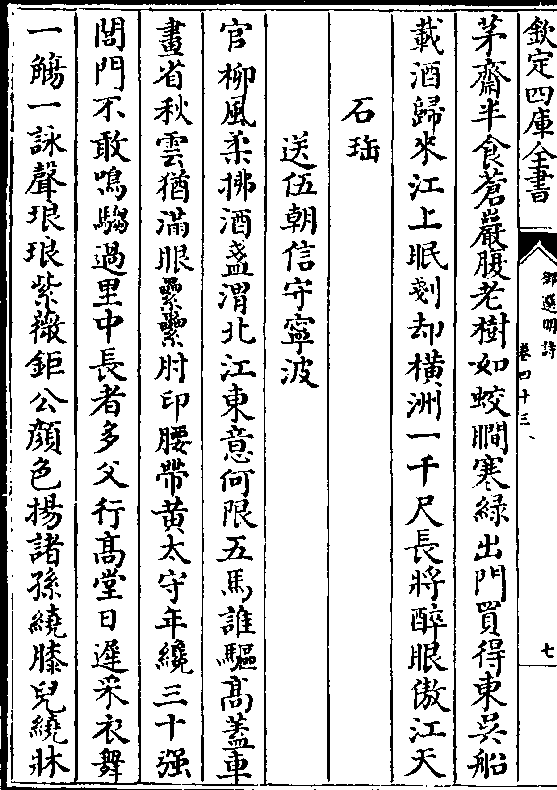 欽定四庫全書
御選明詩
卷四十三
七
茅齋半食蒼巖腹老樹如蛟瞷寒緑出門買得東吳船
載酒歸來江上眠剗却橫洲一千尺長將醉眼傲江天
石珤
送伍朝信守寧波
官柳風柔拂酒盞渭北江東意何限五馬誰驅髙蓋車
畫省秋雲猶滿眼纍纍肘印腰帶黄太守年纔三十强
閭門不敢鳴騶過里中長者多父行髙堂日遲采衣舞
一觴一詠聲琅琅紫薇鉅公顔色揚諸孫繞膝兒繞牀